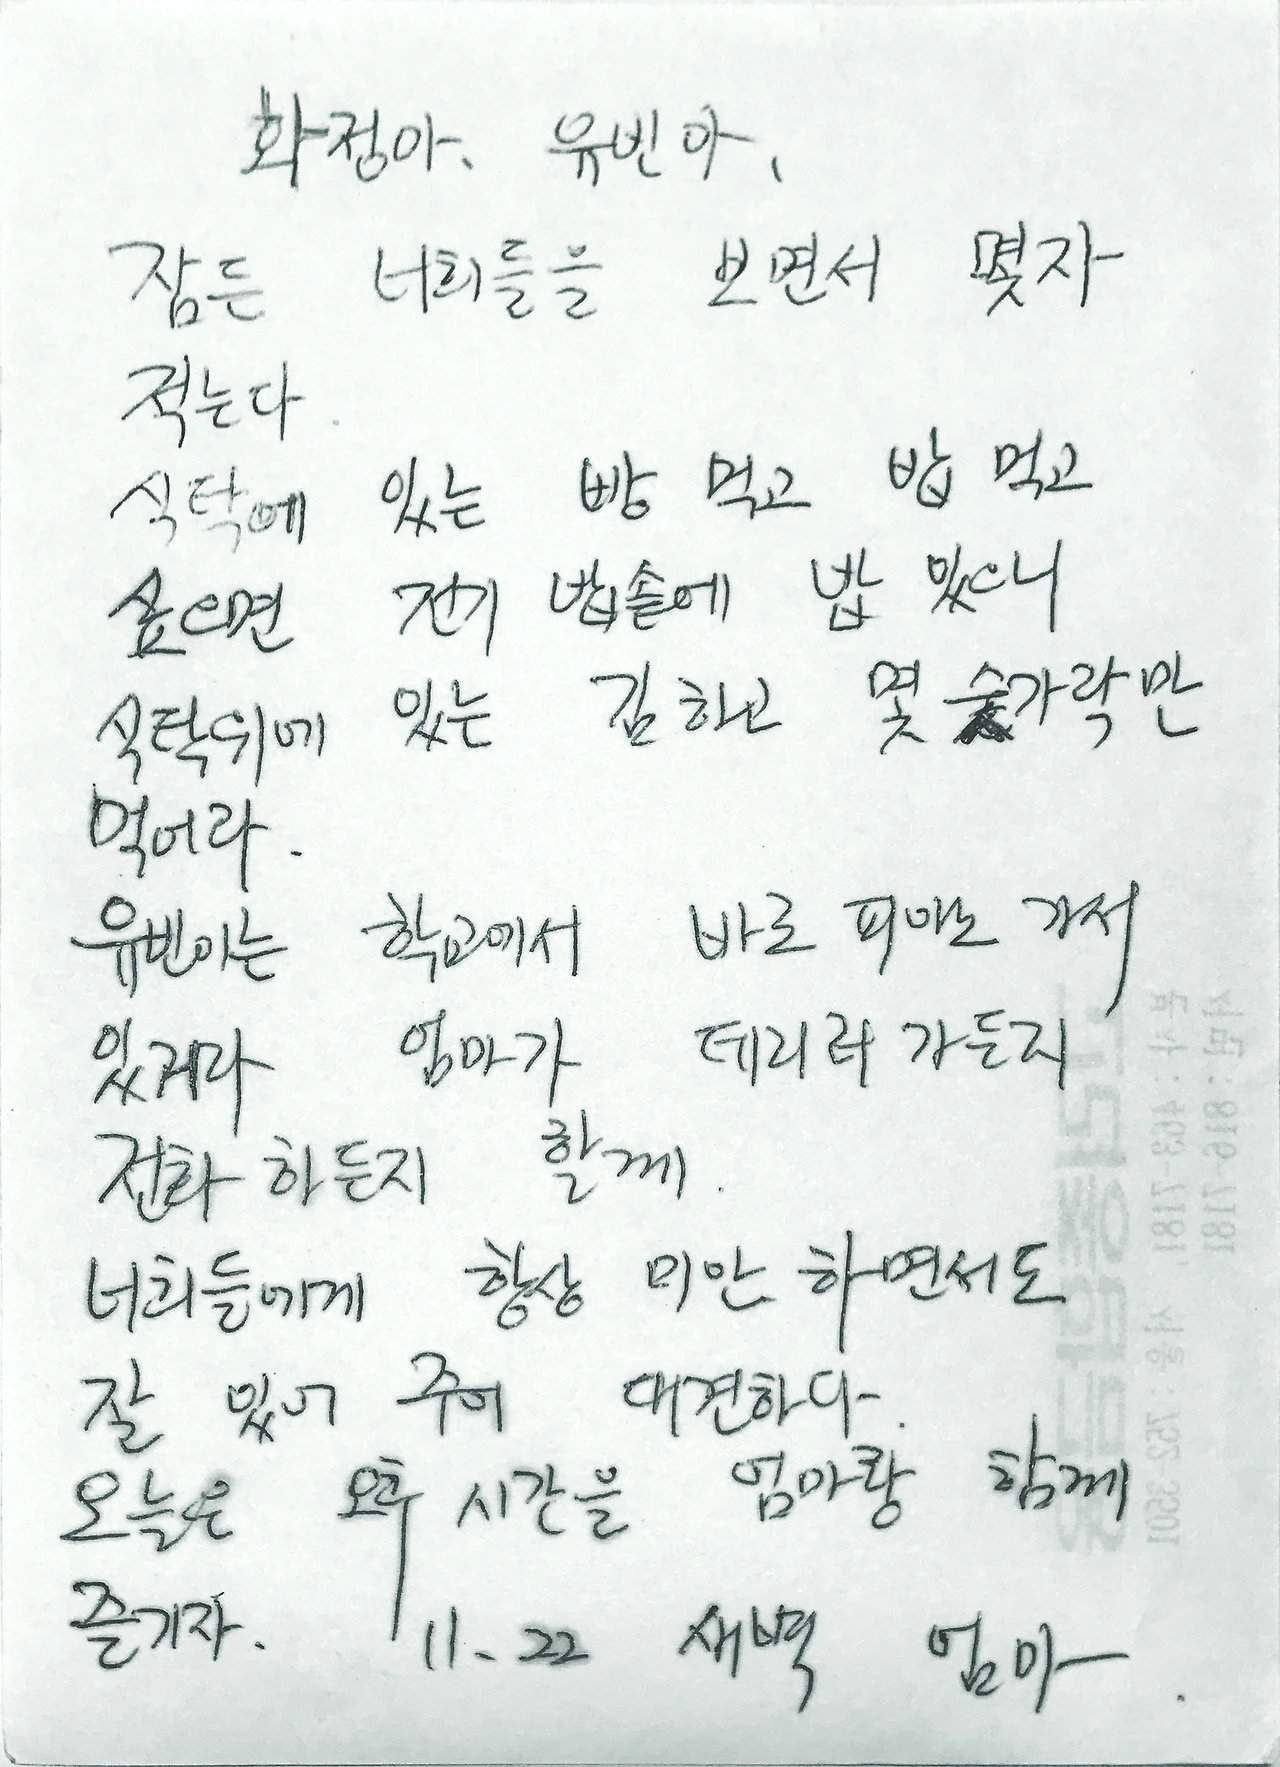 화정아. 유빈아.
잠든 너희들을 보면서 몇자
적는다.
식탁에 있는 빵 먹고 밥 먹고
싶으면 전기 밥솥에 밥 있으니
식탁위에 있는 김하고 몇 숟가락만
먹어라.
유빈이는 학교에서 바로 피아노 가서
있거라 엄마가 데리러 가든지
전화 하든지 할께.
너희들에게 항상 미안 하면서도
잘 있어 주어 대견하다.
오늘은 오후 시간을 엄마랑 함께
즐기자. 11. 22 새벽 엄마.
서면: 816-7181
부산: 463-7181, 서울: 752-3501